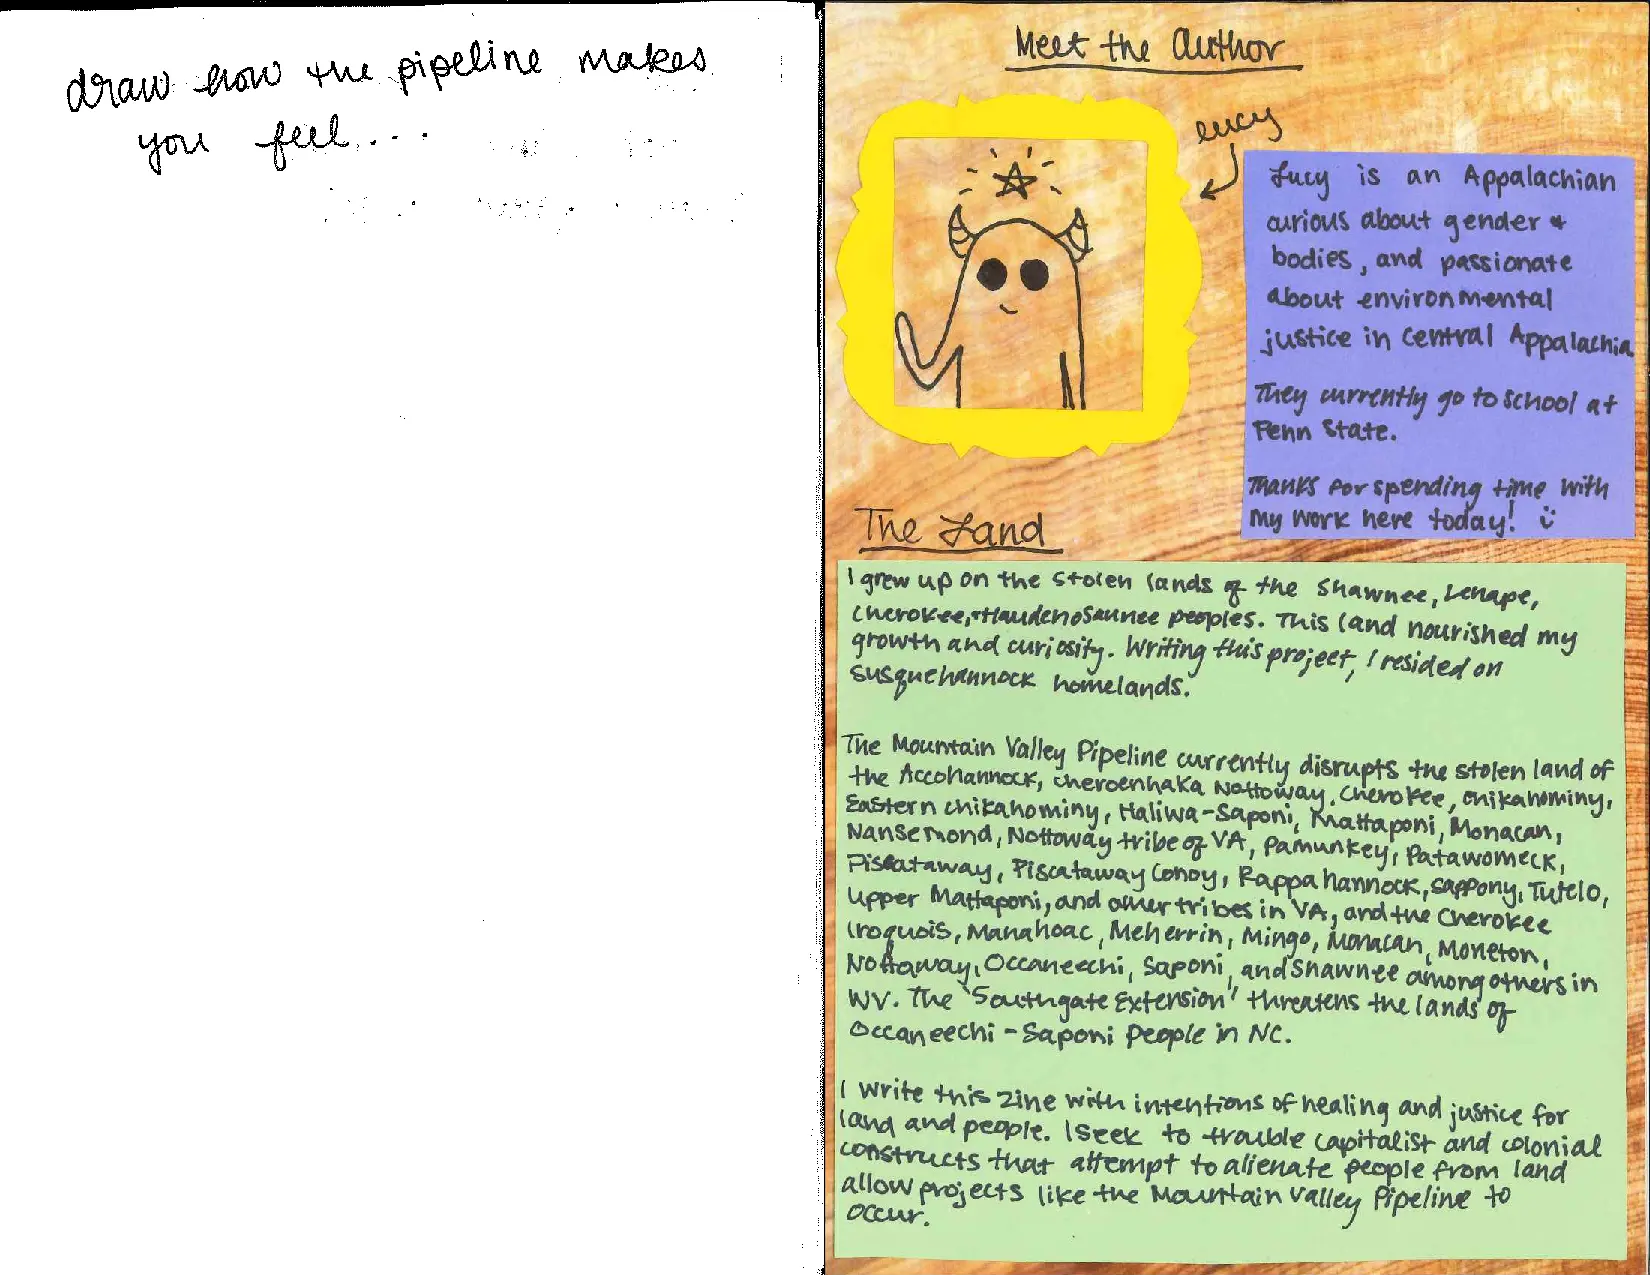 draw how the pipeline makes
you feel...
Meet the Author
Lucy
Lucy is an Appalachian
curious about gender &
bodies, and passionate
about environmental
justice in Central Appalachia
They currently go to school at
Penn State.
Thanks for spending time with
my work here today! :)
The Land
I grew up on the stolen lands of the Shawnee, Lenape,
Cherokee, + Haudenosaunee peoples. This land nourished my
growth and curiosity. Writing this project, I resided on
Susquehannock homelands.
The Mountain Valley Pipeline currently disrupts the stolen land of
the Accohannock, Cheroenhaka Nottoway, Cherokee, Chikahominy,
Eastern Chikahominy, Haliwa-Saponi, Mattaponi, Monacan,
Nansemond, Nottoway tribe of VA, Pamunkey, Patawomeck,
Piscataway, Piscataway Conoy, Rappahannock, Sappony, Tutelo,
Upper Mattaponi, and other tribes in VA, and the Cherokee
Iroquois, Manahoac, Meherrin, Mingo, Monacan, Moneton,
Nottoway, Occaneechi, Saponi, and Shawnee among others in
WV. The "Southgate Extension" threatens the lands of
Occaneechi-Saponi People in NC.
I write this zine with intentions of healing and justice for
land and people. I seek to trouble capitalist and colonial
constructs that attempt to alienate people from land
allow projects like the Mountain Valley Pipeline to
occur.